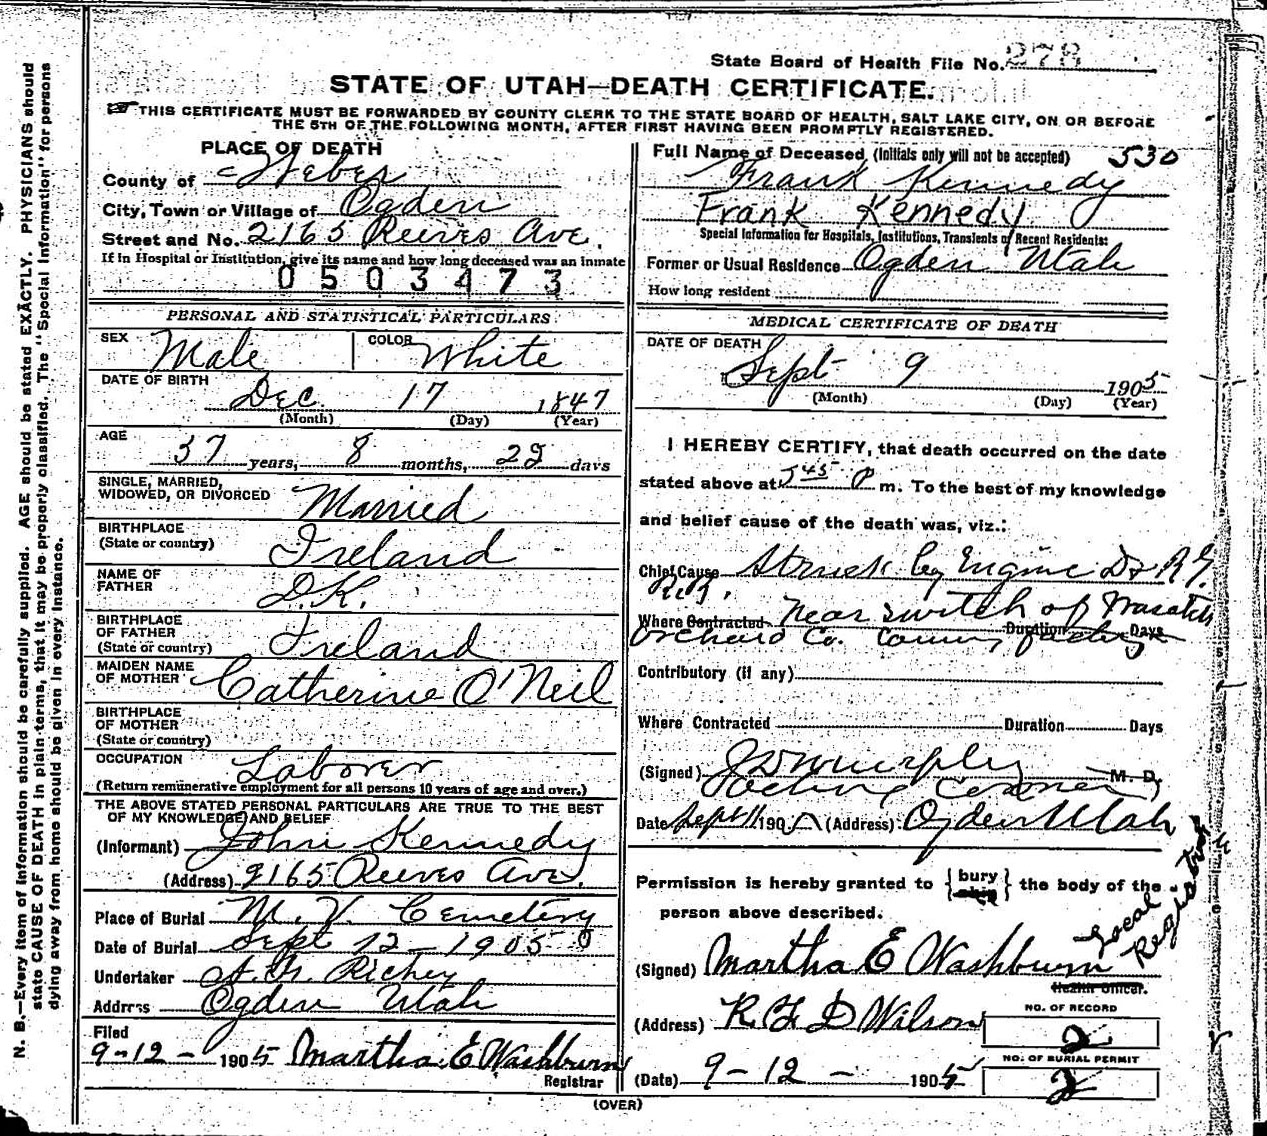 State Board of Health File No. 278
STATE OF UTAH—DEATH CERTIFICATE.
THIS CERTIFICATE MUST BE FORWARDED BY COUNTY CLERK TO THE STATE BOARD OF HEALTH, SALT LAKE CITY, ON OR BEFORE
THE 5TH OF THE FOLLOWING MONTH, AFTER FIRST HAVING BEEN PROMPTLY REGISTERED.
N. B.—Every item of information should be carefully supplied. AGE should be stated EXACTLY. PHYSICIANS should
state CAUSE OF DEATH in plain terms, that it may be properly classified. The "Special Information" for persons
dying away from home should be given in every instance.
PLACE OF DEATH
County of Weber
City, Town or Village of Ogden
Street and No. 2165 Reeves Ave.
If in Hospital or Institution, give its name and how long deceased was an inmate
0503473
PERSONAL AND STATISTICAL PARTICULARS
SEX Male COLOR White
DATE OF BIRTH Dec. 17 1847
(Month) (Day) (Year)
AGE 57 years, 8 months, 22 days
SINGLE, MARRIED,
WIDOWED, OR DIVORCED Married
BIRTHPLACE
(State or country) Ireland
NAME OF
FATHER D.K.
BIRTHPLACE
OF FATHER
(State or country) Ireland
MAIDEN NAME
OF MOTHER Catherine O'Neil
BIRTHPLACE
OF MOTHER
(State or country)
OCCUPATION Laborer
(Return remunerative employment for all persons 10 years of age and over.)
THE ABOVE STATED PERSONAL PARTICULARS ARE TRUE TO THE BEST
OF MY KNOWLEDGE AND BELIEF
(Informant) John Kennedy
(Address) 2165 Reeves Ave.
Place of Burial M. V. Cemetery
Date of Burial Sept 12 - 1905
Undertaker Richey
Address Ogden Utah
Filed
9-12- 1905 Martha E Washburn
Registrar
Full Name of Deceased (Initials only will not be accepted) 530
Frank Kennedy
Frank Kennedy
Special Information for Hospitals, Institutions, Transients or Recent Residents:
Former or Usual Residence Ogden Utah
How long resident
MEDICAL CERTIFICATE OF DEATH
DATE OF DEATH
Sept 9 1905
(Month) (Day) (Year)
I HEREBY CERTIFY, that death occurred on the date
stated above at 5 45 P m. To the best of my knowledge
and belief cause of the death was, viz.:
Chief Cause Struck by Engine D & R G.
R.R.
Where Contracted near switch of Wasatch Duration Days
Orchard Co. Canning factory
Contributory (if any)
Where Contracted Duration Days
(Signed) J D Murphy M. D.
Acting Coroner
Date Sept 11 1905 (Address) Ogden Utah
Permission is hereby granted to { bury ship } the body of the
person above described.
(Signed) Martha E Washburn Local Registrar
Health Officer.
(Address) R F D Wilson
NO. OF RECORD
2
NO. OF BURIAL PERMIT
2
(Date) 9-12- 1905
(OVER)